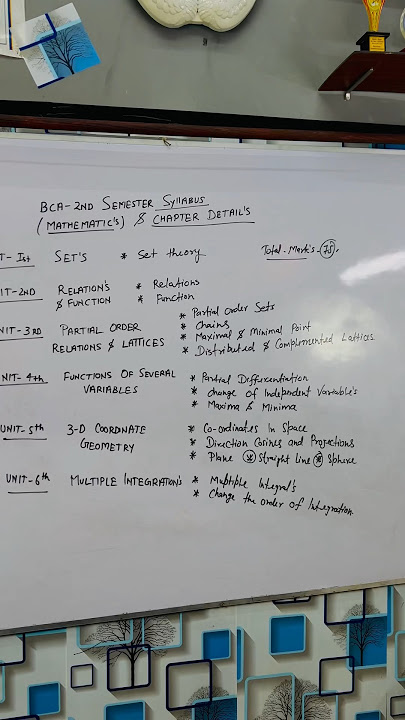 BCA-2ND SEMESTER SYLLABUS
(MATHEMATIC'S) & CHAPTER DETAIL'S
Total Mark's-(75).
T-Ist SET'S * Set theory
IT-2ND RELATION'S & FUNCTION * Relations
* Function
NIT-3RD PARTIAL ORDER RELATIONS & LATTICES * Partial Order Sets
* Chains
* Maximal & Minimal Point
* Distributed & Complemented Lattices
NIT-4th FUNCTIONS OF SEVERAL VARIABLES * Partial Differentiation
* change of Independent Variable's
* Maxima & Minima
UNIT-5th 3-D COORDINATE GEOMETRY * Co-ordinates In Space
* Direction Cosines and Projections
* Plane * Straight line * Sphere
UNIT-6th MULTIPLE INTEGRATION'S * Multiple Integral's
* Change the order of Integration